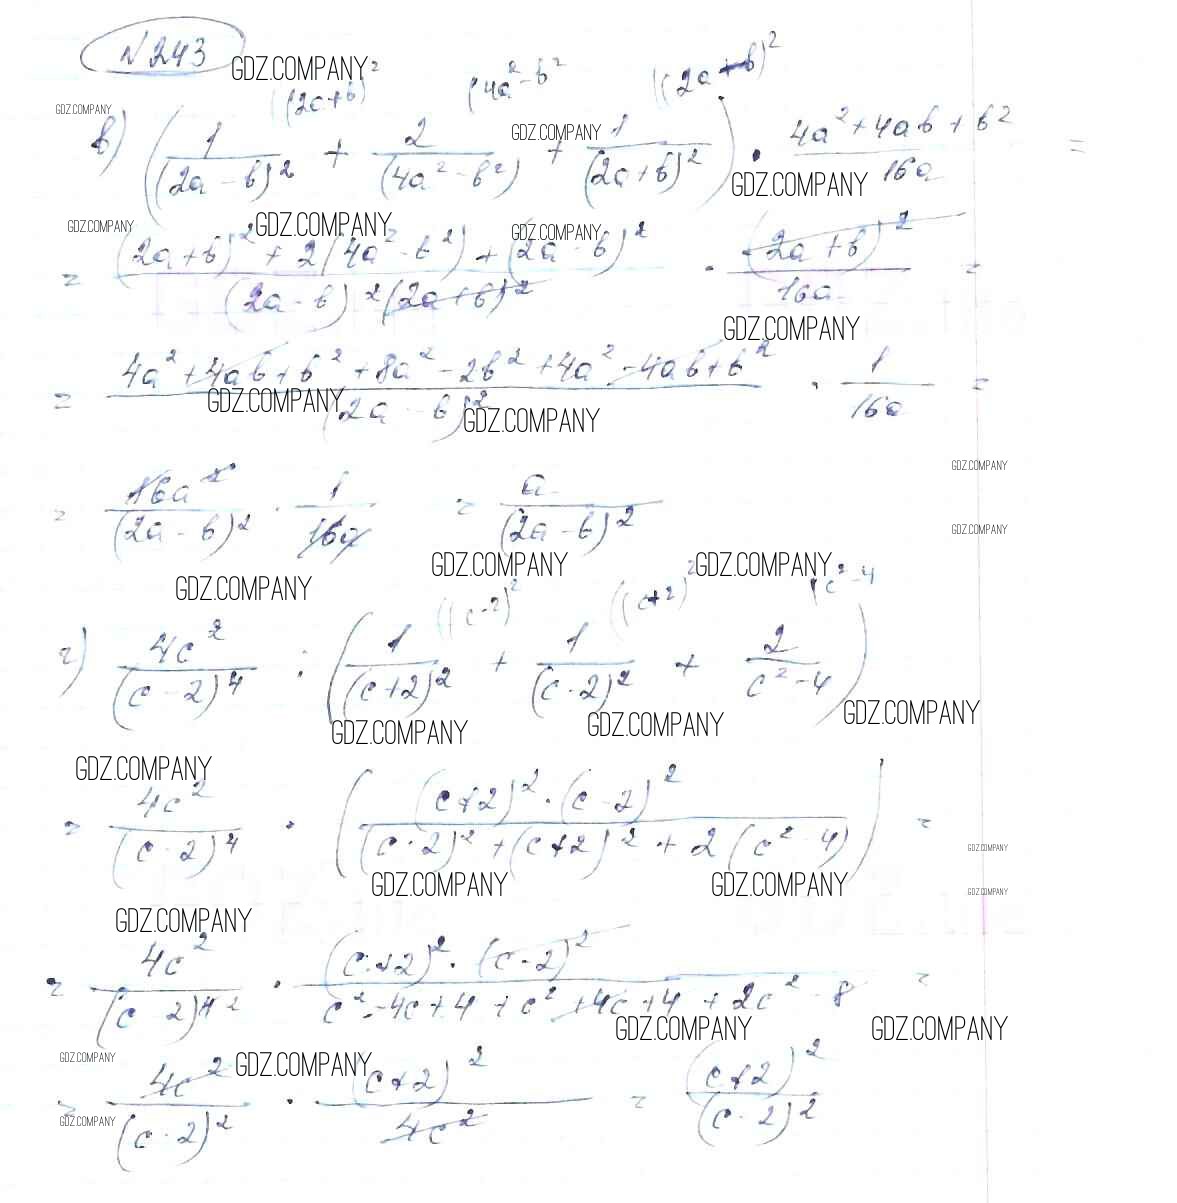 N 243
GDZ.COMPANY
((2a+b)² (4a²-b² ((2a+b)²
GDZ.COMPANY GDZ.COMPANY
в) (1/(2a-b)² + 2/(4a²-b²) + 1/(2a+b)²) · (4a²+4ab+b²)/16a =
GDZ.COMPANY
GDZ.COMPANY GDZ.COMPANY GDZ.COMPANY
= ((2a+b)²+2(4a²-b²)+(2a-b)²)/((2a-b)²(2a+b)²) · (2a+b)²/16a =
GDZ.COMPANY
= (4a²+4ab+b²+8a²-2b²+4a²-4ab+b²)/(2a-b)² · 1/16a =
GDZ.COMPANY GDZ.COMPANY
GDZ.COMPANY
= 16a²/(2a-b)² · 1/16a = a/(2a-b)²
GDZ.COMPANY
GDZ.COMPANY GDZ.COMPANY
GDZ.COMPANY
((c-2)² ((c+2)² (c²-4
г) 4c²/(c-2)⁴ : (1/(c+2)² + 1/(c-2)² + 2/(c²-4))
GDZ.COMPANY GDZ.COMPANY GDZ.COMPANY
GDZ.COMPANY
= 4c²/(c-2)⁴ · ((c+2)²·(c-2)²/((c-2)²+(c+2)²+2(c²-4))) =
GDZ.COMPANY
GDZ.COMPANY GDZ.COMPANY GDZ.COMPANY
GDZ.COMPANY
= 4c²/(c-2)⁴ ² · (c+2)²·(c-2)²/(c²-4c+4+c²+4c+4+2c²-8) =
GDZ.COMPANY GDZ.COMPANY
GDZ.COMPANY GDZ.COMPANY
= 4c²/(c-2)² · (c+2)²/4c² = (c+2)²/(c-2)²
GDZ.COMPANY